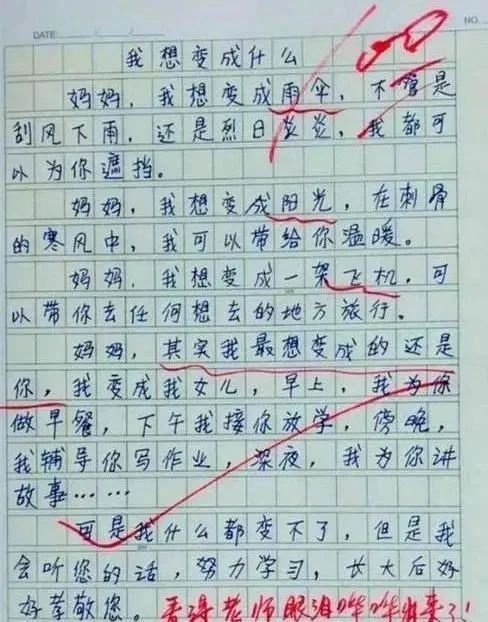 DATE:
NO.
我想变成什么
妈妈，我想变成雨伞，不管是
刮风下雨，还是烈日炎炎，我都可
以为你遮挡。
妈妈，我想变成阳光，在刺骨
的寒风中，我可以带给你温暖。
妈妈，我想变成一架飞机，可
以带你去任何想去的地方旅行。
妈妈，其实我最想变成的还是
你，我变成我女儿，早上，我为你
做早餐，下午我接你放学，傍晚，
我辅导你写作业，深夜，我为你讲
故事……
可是我什么都变不了，但是我
会听您的话，努力学习，长大后好
好孝敬您。看得老师眼泪哗哗出来了！